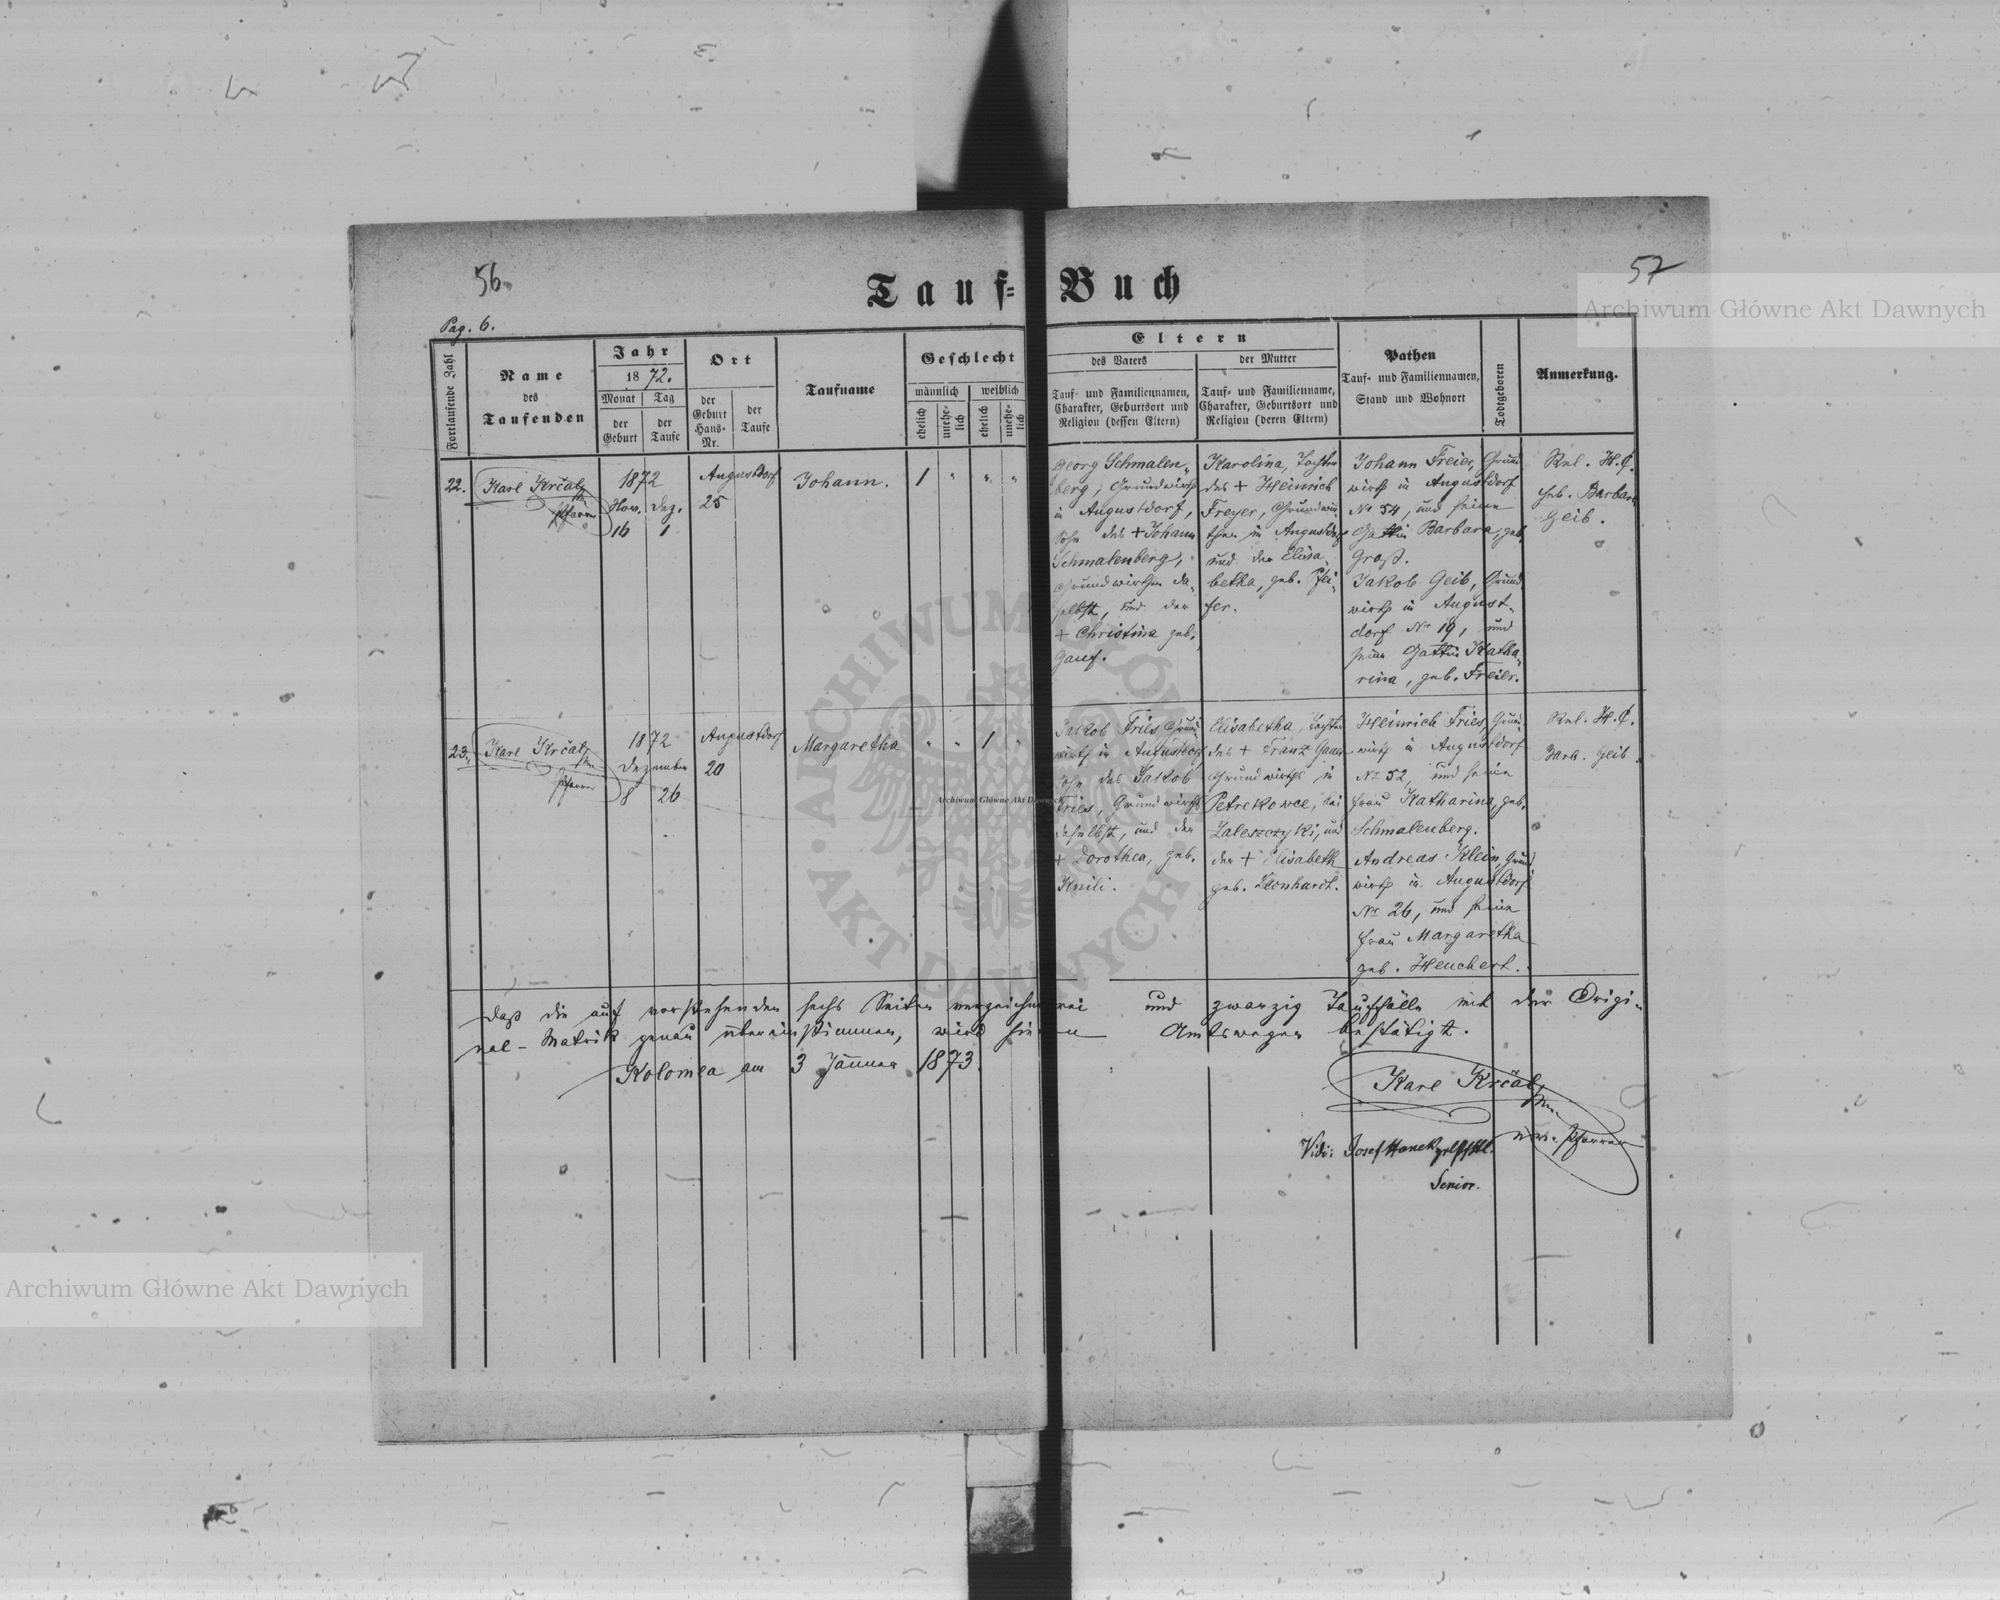 56.
57
Tauf-Buch
Pag. 6.
Fortlaufende Zahl
Name
des
Taufenden
Jahr
1872.
Monat
Tag
der
Geburt
der
Taufe
Ort
der
Geburt
Haus-
Nr.
der
Taufe
Taufname
Geschlecht
männlich
weiblich
ehelich
unehe-
lich
ehelich
unehe-
lich
Eltern
des Vaters
der Mutter
Tauf- und Familiennamen,
Charakter, Geburtsort und
Religion (dessen Eltern)
Tauf- und Familienname,
Charakter, Geburtsort und
Religion (deren Eltern)
Pathen
Tauf- und Familiennamen,
Stand und Wohnort
Todtgeboren
Anmerkung.
22.
Karl Krčal
Pfarrer
1872
Nov. Dez.
16 1
Augustdorf
25
Johann.
1 " " "
Georg Schmalen-
berg, Grundwirth
in Augustdorf,
Sohn des + Johann
Schmalenberg,
Grundwirthes da-
selbst, und der
+ Christina geb.
Karolina, Tochter
des + Heinrich
Freyer, Grundwir-
thes in Augustdorf
und der Elisa-
betha, geb. Pfei-
fer.
Johann Freier, Grund-
wirth in Augustdorf
No 54, und seine
Gattin Barbara, geb.
Groß.
Jakob Geib, Grund-
wirth in August-
dorf No 19, und
seine Gattin Katha-
rina, geb. Freier.
Rel. H. C.
Heb. Barbara
Geib.
23.
Karl Krčal
Pfarrer
1872
Dezember
8 26
Augustdorf
20
Margaretha
" " 1 "
Jakob Fries, Grund-
wirth in Augustdorf
Sohn des Jakob
Fries, Grundwirths
daselbst, und der
+ Dorothea, geb.
Knili.
Elisabetha, Tochter
des + Franz
Grundwirths in
Petrekowce, bei
Zaleszczyki, und
der + Elisabeth
geb. Leonhardt.
Heinrich Fries, Grund-
wirth in Augustdorf
No 52, und seine
Frau Katharina, geb.
Schmalenberg.
Andreas Klein, Grund-
wirth in Augustdorf
No 26, und seine
Frau Margaretha
geb. Heuchert.
Rel. H. C.
Barb. Geib.
Daß die auf vorstehenden sechs Seiten verzeichneten drei und zwanzig Tauffälle mit der Origi-
nal-Matrik genau übereinstimmen, wird hie von Amtswegen bestätigt.
Kolomea am 3 Jänner 1873.
Karl Krčal
Pfarrer
Vidi: Josef
Senior.
Archiwum Główne Akt Dawnych
Archiwum Główne Akt Dawnych
Archiwum Główne Akt Dawnych
ARCHIWUM GŁÓWNE · AKT DAWNYCH ·